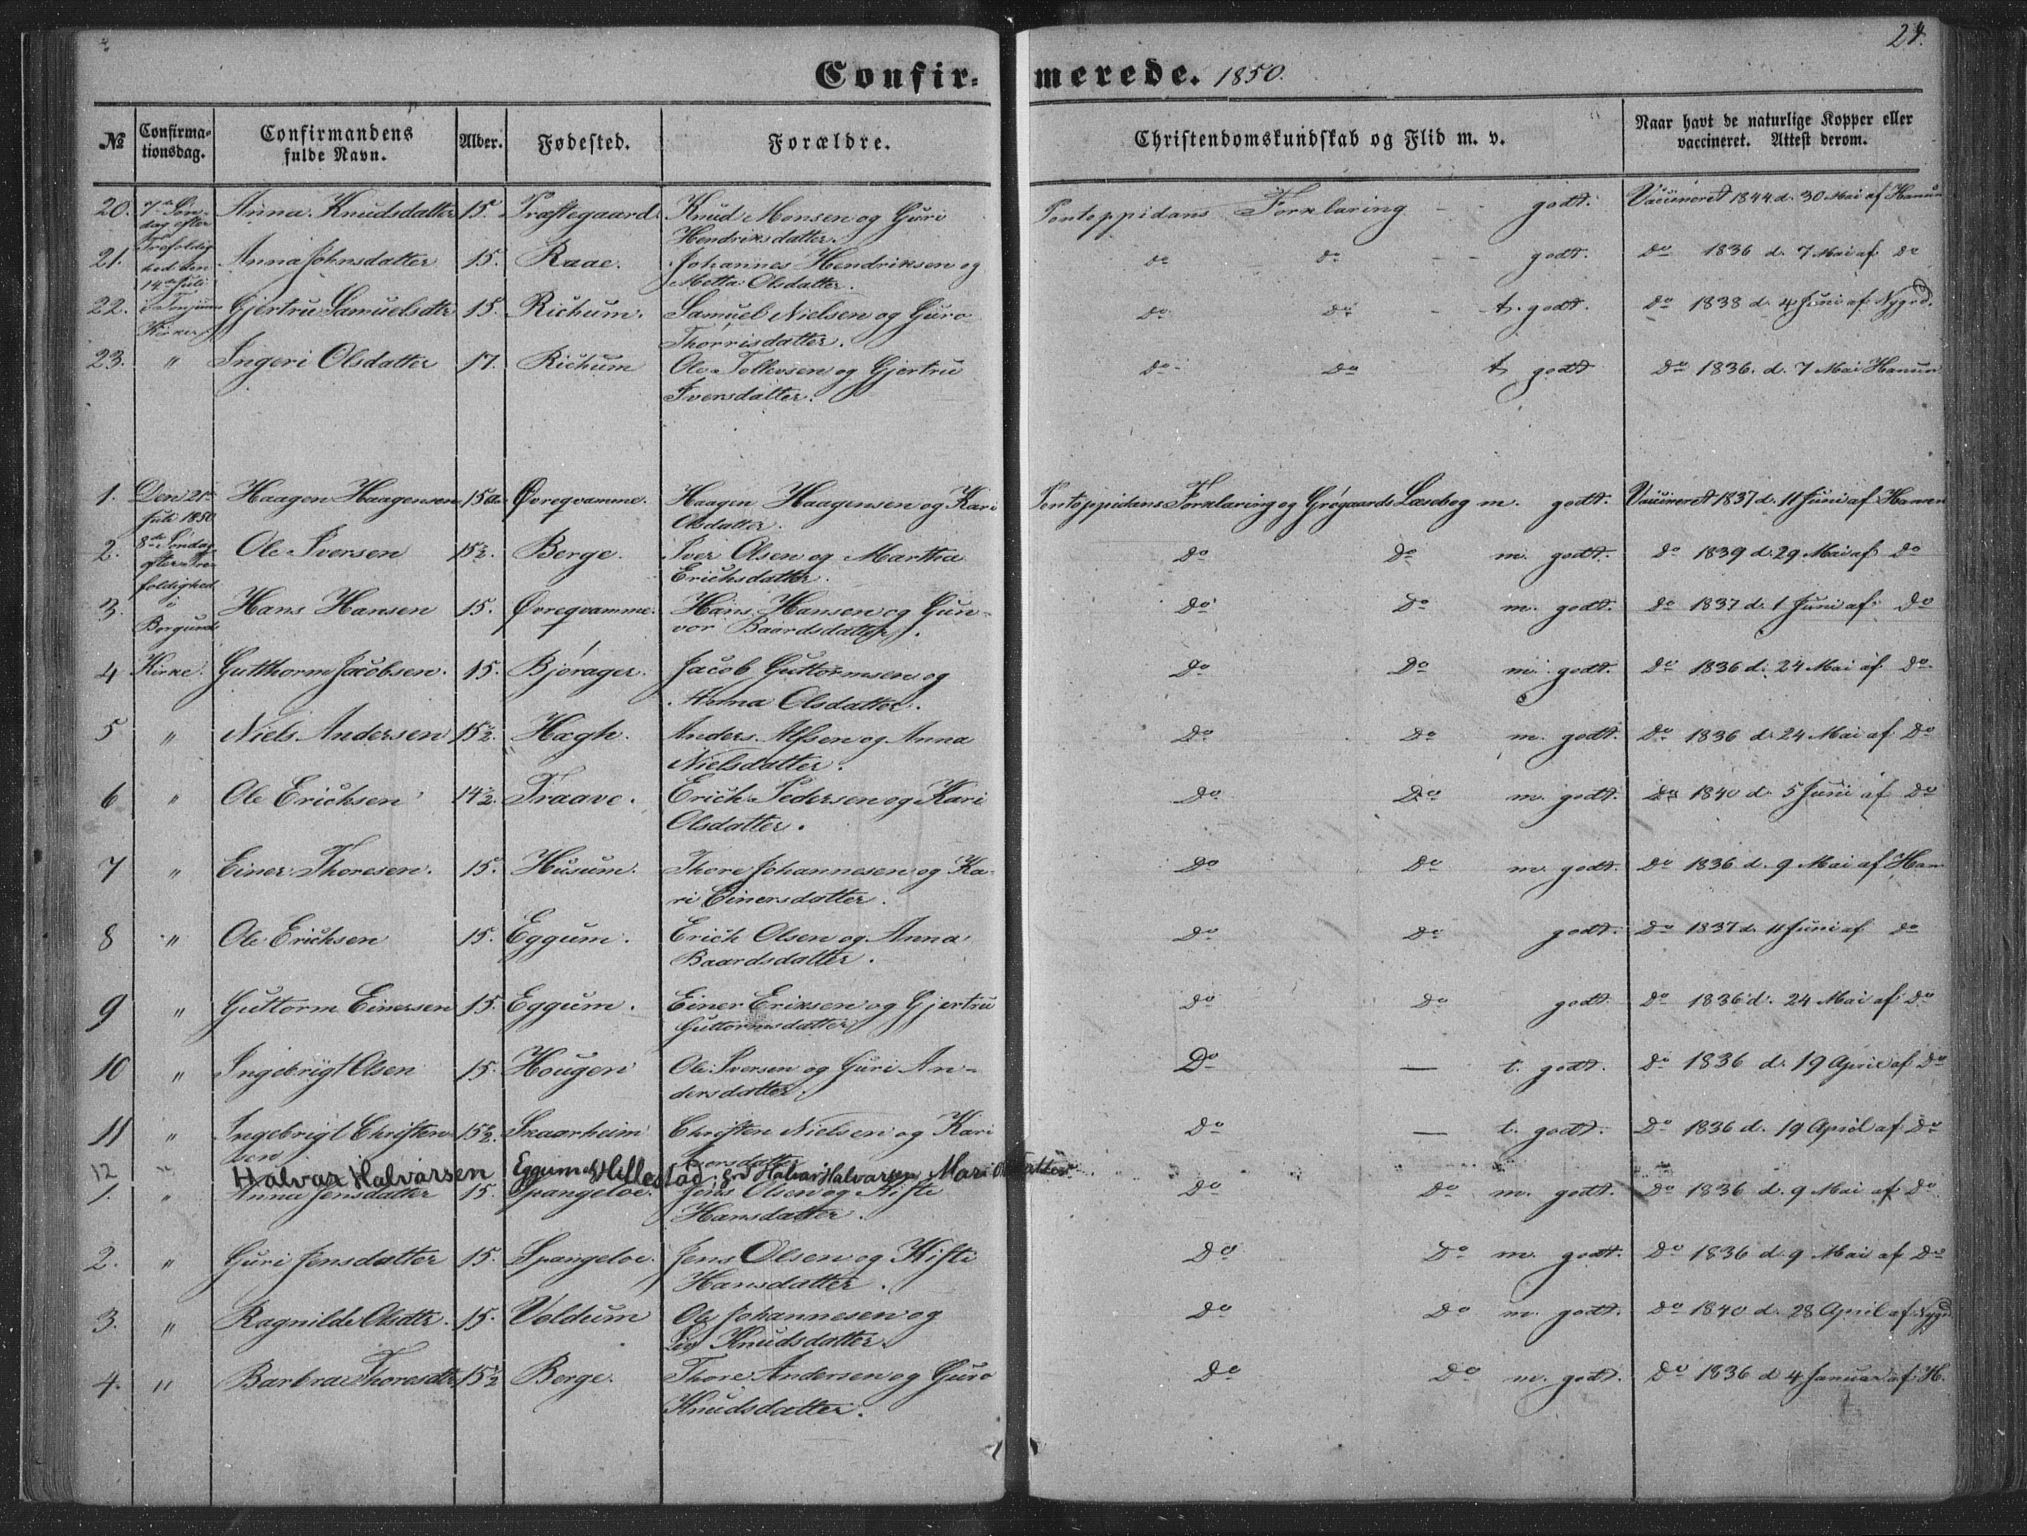 24.
Confirmerede. 1850.
№ Confirmationsdag. Confirmandens fulde Navn. Alder. Fødested. Forældre. Christendomskundskab og Flid m. v. Naar havt de naturlige Kopper eller vaccineret. Attest derom.
20. 7de Søn- Anna Knudsdatter 15. Præstegaard. Knud Monsen og Guri Pontoppidans Forklaring - - godt. Vaccineret 1844 d. 30 Mai af Hanun
dag efter Hendriksdatter.
21. Trefoldig Anna Johnsdatter 15. Raae. Johannes Hendriksen og do do - - godt. do 1836 d. 7 Mai af do
hed den Metta Olsdatter.
14de Juli
22. Gjertru Samuelsdtr 15. Richum. Samuel Nielsen og Guro do do - t. godt. do 1838 d. 4 Juni af Nygrd.
Kirke Thorrisdatter.
23. " Ingeri Olsdatter 17. Richum Ole Tollevsen og Gjertru do do t godt do 1836. d. 7 Mai Hanun
Iversdatter.
1. Den 21de Haagen Haagensen 15 Øvreqvamme. Haagen Haagensen og Kari Pontoppidans Forklaring og Grøgaards Læsebog m. godt. Vaccineret 1837 d. 11 Juni af Hanun
Juli 1850 Olsdatter.
2. 8de Søndag Ole Iversen 15½. Berge. Iver Olsen og Marttra Do Do m. godt. do 1839 d. 29 Mai af do
efter Tre- Erichsdatter.
foldighed
3. i Hans Hansen 15. Øvreqvamme. Hans Hansen og Gun- Do Do m. godt. do 1837 d. 1 Juni af do
Borgund vor Baardsdatter.
4 Kirke. Gutthorm Jacobsen. 15. Bjørager. Jacob Guttormsen og Do Do m. godt. do 1836 d. 24 Mai af do
Anna Olsdatter.
5 " Niels Andersen 15½. Hægh. Anders Alfsen og Anna Do Do m. godt. Do 1836 d. 24 Mai af Do
Nielsdatter.
6 " Ole Erichsen 14½. Traave. Erich Pedersen og Kari Do Do m. godt. Do 1840 d. 5 Juni af Do
Olsdatter.
7 " Einer Thoresen. 15. Husum. Thore Johannesen og Ka- Do Do m. godt. Do 1836 d. 9 Mai af Han
ri Einersdatter.
8 " Ole Erichsen 15. Eggum. Erich Olsen og Anna Do Do godt. Do 1837 d. 11 Juni af do
Baardsdatter.
9 " Guttorm Einersen 15. Eggum. Einer Eriksen og Gjertru Do Do godt. Do 1836 d. 24 Mai af Do
Guttormsdatter
10 " Ingebrigt Olsen 15. Hougen Ole Iversen og Guri An- Do — t. godt. Do 1836 d. 19 April af Do
dersdatter.
11 " Ingebrigt Christen 15½. Skaarheim Christen Nielsen og Kari Do — t. godt. Do 1836 d. 19 April af Do
sen Iversdatter
12 " Halvar Halvarsen Eggum Hillestad Halvar Halvarsen Mari
1. " Anna Jensdatter 15. Spangeloe. Jens Olsen og Kifti Do Do m. godt. Do 1836 d. 9 Mai af Do
Hansdatter.
2. " Guri Jensdatter 15. Spangeloe. Jens Olsen og Kifti Do Do m. godt. Do 1836 d. 9 Mai af Do
Hansdatter.
3. " Ragnilde Olsdtr. 15. Voldum Ole Johannesen og Do Do m. godt. Do 1840 d. 28 April af Nygrd
Liv Knudsdatter.
4. " Barbra Thoresdtr 15½ Berge. Thore Andersen og Guro Do Do m. godt. Do 1836 d 4 Januar af H.
Knudsdatter.